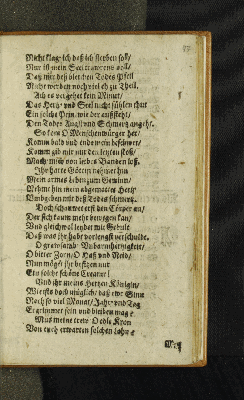 Nicht klag ich deß ich sterben soll/
Nur ist mein Seel trawrens voll/
Daß mir deß bleichen Todes Pfeil
Nicht werden noch viel eh zu Theil.
Ach es vergehet kein Minut/
Das Hertz und Seel nicht fühlen thut
Ein solche Pein/ wie der außsteht/
Den Todes Angst und Schmertz angeht/.
So kom O Menschenwürger her/
Komm bald und ende mein beschwer/
Kamm gib mir nur den letzten stoß/
Mach mich von liebes Banden loß.
Ihr harte Göttin nehmet hin
Mein armes Leben zum Gewinn/
Nehmt hin mein abgemattes Hertz
Umbgeben mit deß Todes schmertz.
Doch schawet erst den Cörper an/
Der sich kaum mehr bewegen kan/
Und gleichwol leydet mit Gedult
Daß was ihr habt vorlengst verschuldt.
O grawsame Unbarmhertzigkeit/
O bitter Zorn/ O Haß und Neid/
Nun mögt ihr besitzen nur
Ein solche schöne Creatur!
Und ihr meins Hertzen Königin/
Wie ists doch müglich/ daß ewr Sinn
Noch so viel Monat/ Jahr und Tag
Ergrimmet seyn und bleiben mag?
Muß meine trew O edle Kron
Von euch erwarten solchen Lohn?